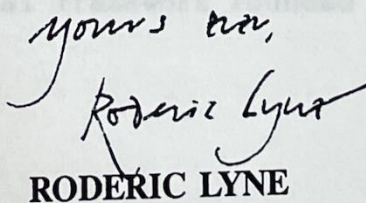 Yours ever,
Roderic Lyne
RODERIC LYNE